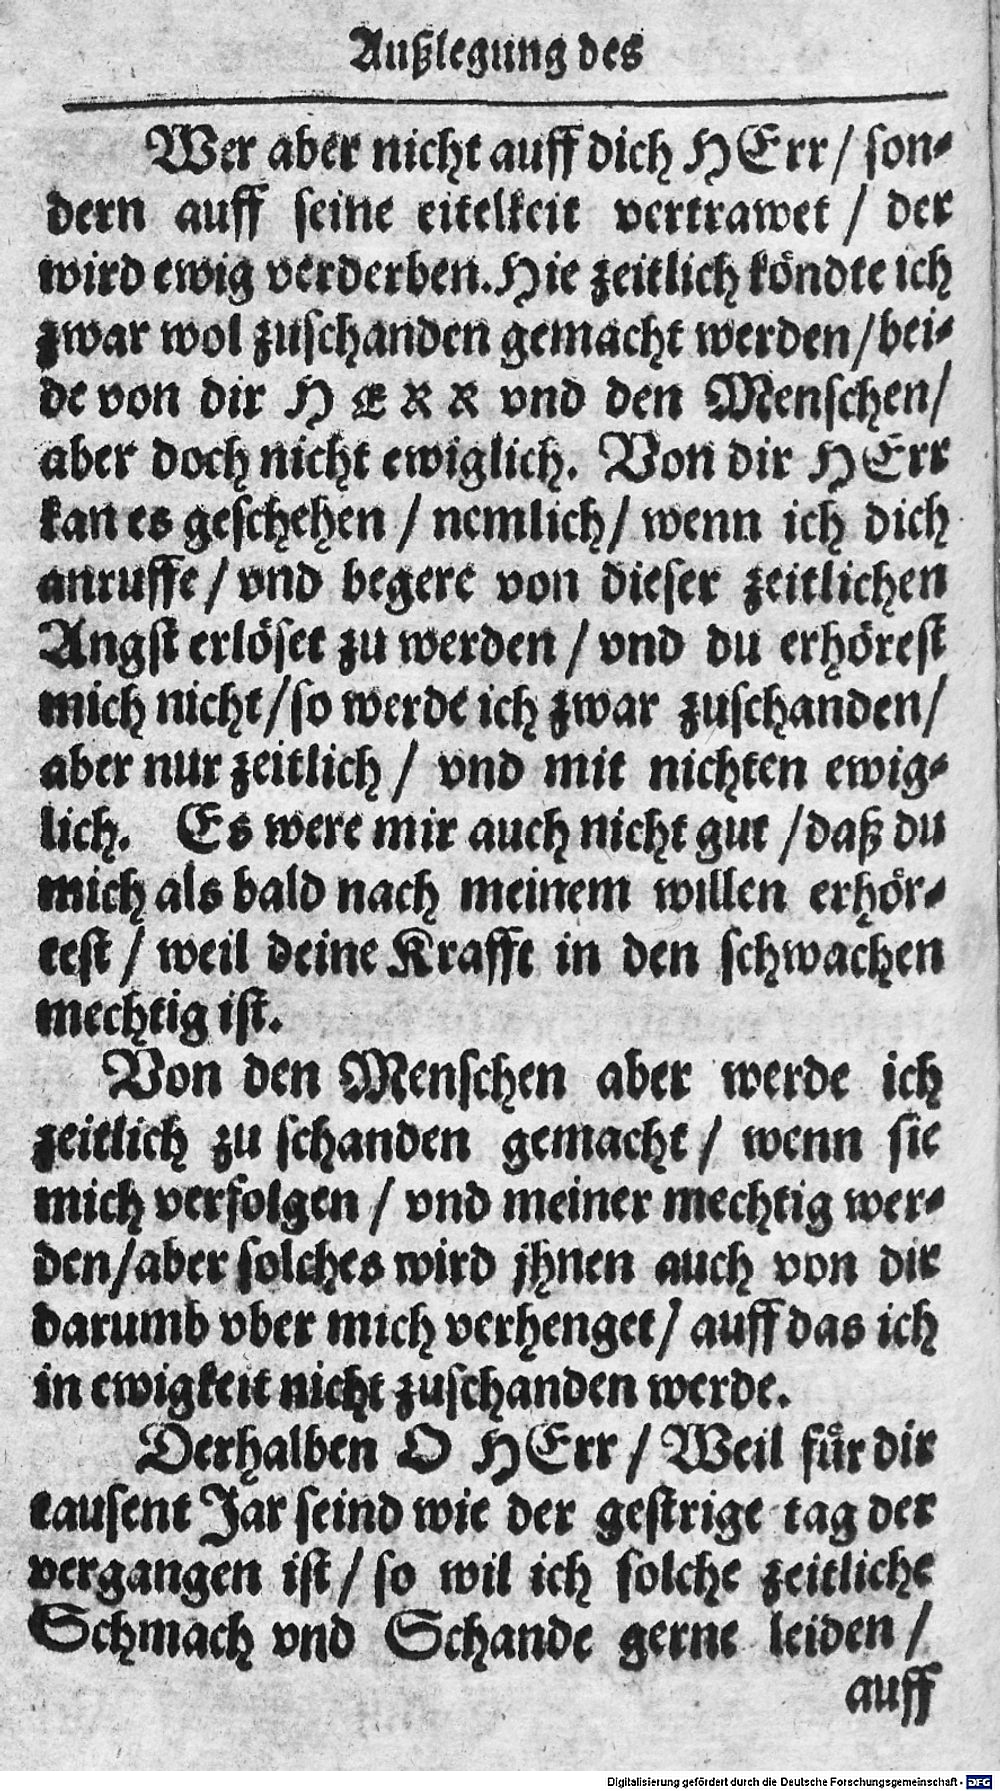 Außlegung des
Wer aber nicht auff dich HErr / son-
dern auff seine eitelkeit vertrawet / der
wird ewig verderben. Hie zeitlich köndte ich
zwar wol zuschanden gemacht werden / bei-
de von dir HERR vnd den Menschen /
aber doch nicht ewiglich. Von dir HErr
kan es geschehen / nemlich / wenn ich dich
anruffe / vnd begere von dieser zeitlichen
Angst erlöset zu werden / vnd du erhörest
mich nicht / so werde ich zwar zuschanden /
aber nur zeitlich / vnd mit nichten ewig-
lich. Es were mir auch nicht gut / daß du
mich als bald nach meinem willen erhör-
test / weil deine Krafft in den schwachen
mechtig ist.
Von den Menschen aber werde ich
zeitlich zu schanden gemacht / wenn sie
mich verfolgen / vnd meiner mechtig wer-
den / aber solches wird jhnen auch von dir
darumb vber mich verhenget / auff das ich
in ewigkeit nicht zuschanden werde.
Derhalben O HErr / Weil für dir
tausent Jar seind wie der gestrige tag der
vergangen ist / so wil ich solche zeitliche
Schmach vnd Schande gerne leiden /
auff
Digitalisierung gefördert durch die Deutsche Forschungsgemeinschaft - DFG